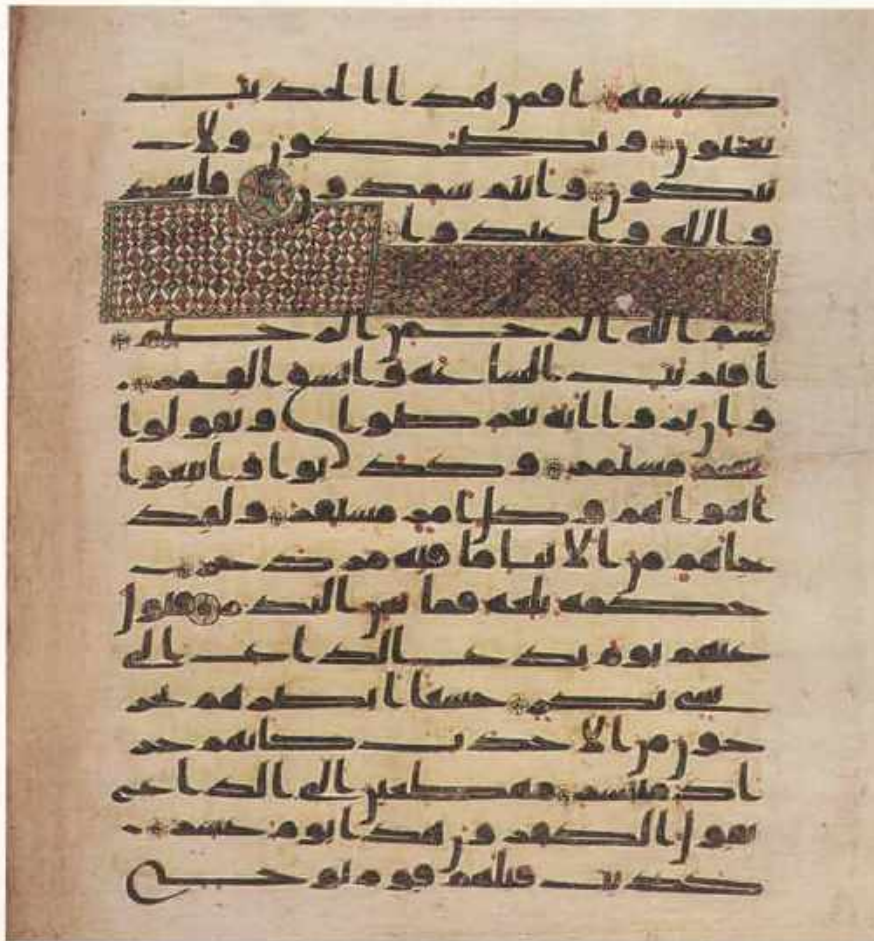 كشفة افمن هذا الحديث
تعجبون وتضحكون ولا
تبكون وانتم سمدون فاسجد
وا لله واعبدوا
بسم الله الرحمن الرحيم
اقتربت الساعة وانشق القمر
وان يروا اية يعرضوا ويقولوا
سحر مستمر وكذبوا واتبعوا
اهواهم وكل امر مستقر ولقد
جاهم من الانبا ما فيه مزدجر
حكمة بلغة فما تغن النذر فتول
عنهم يوم يدع الداع الى
شي نكر خشعا ابصرهم يخر
جون من الاجداث كانهم جر
اد منتشر مهطعين الى الداع
يقول الكفرون هذا يوم عسر
كذبت قبلهم قوم نوح